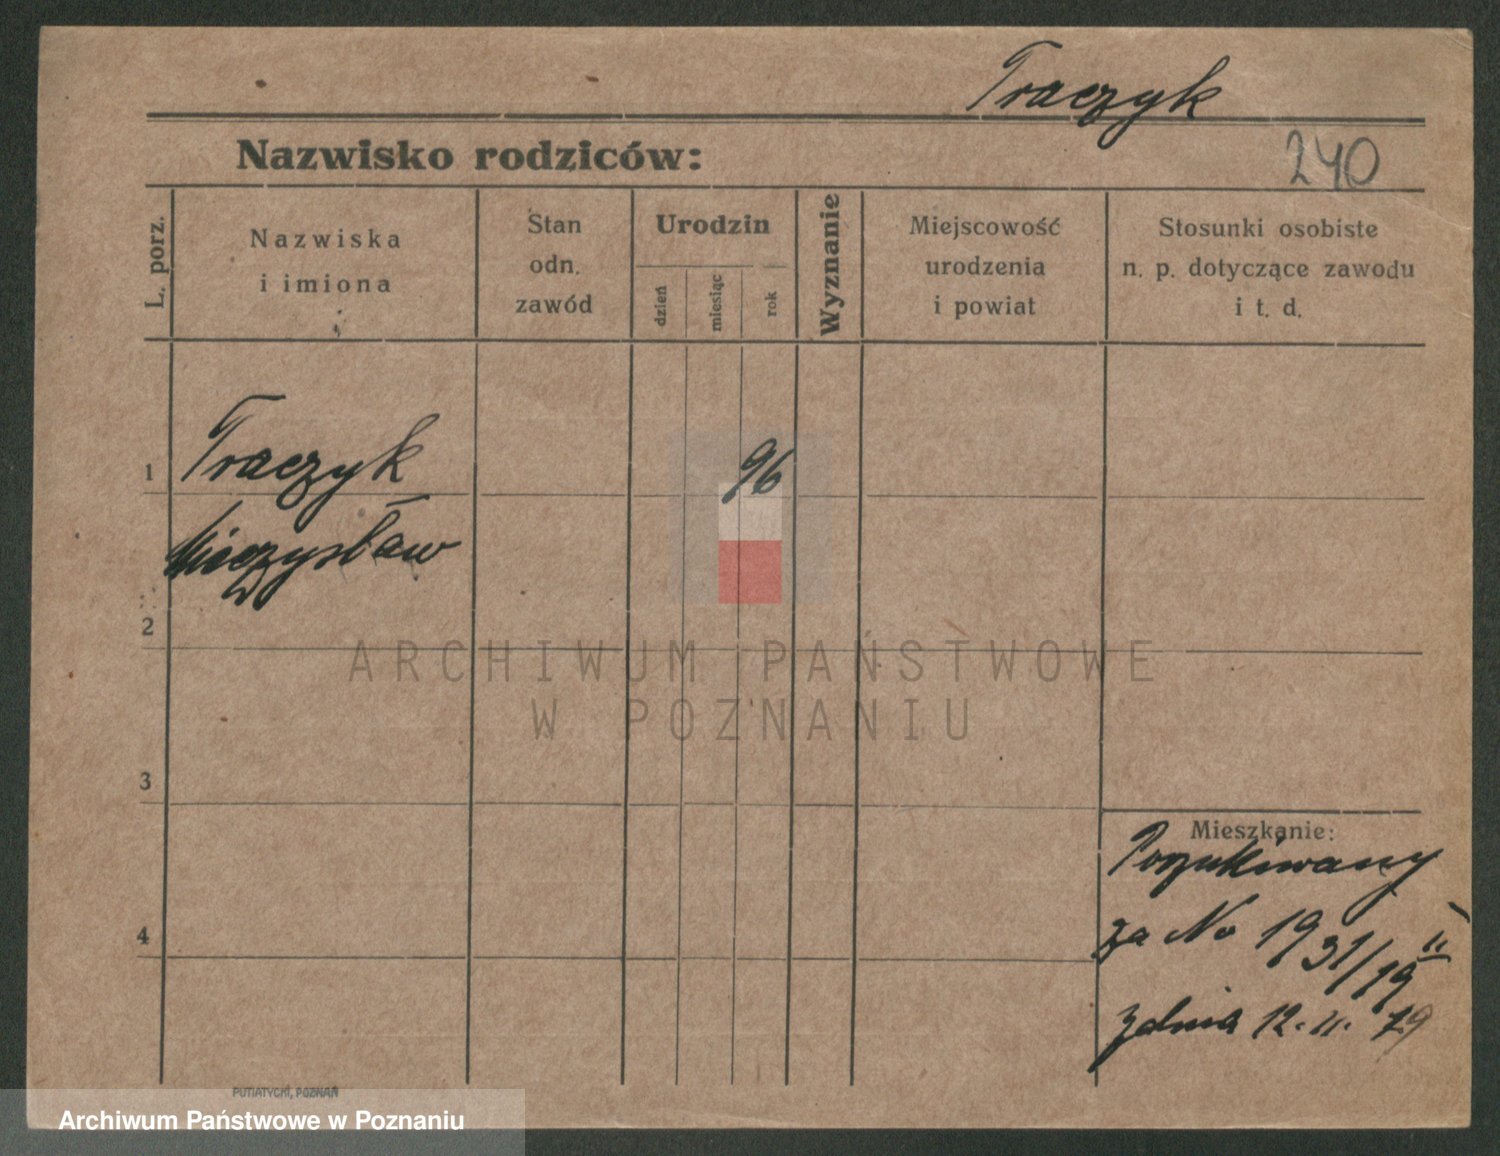 Traczyk
Nazwisko rodziców:
240
L. porz.
Nazwiska
i imiona
Stan
odn.
zawód
Urodzin
dzień
miesiąc
rok
Wyznanie
Miejscowość
urodzenia
i powiat
Stosunki osobiste
n. p. dotyczące zawodu
i t. d.
1
Traczyk
96
Mieczysław
2
ARCHIWUM PAŃSTWOWE
W POZNANIU
3
Mieszkanie:
Poszukiwany
za No 1931/19 II
4
z dnia 12.II.29
PUTIATYCKI, POZNAŃ
Archiwum Państwowe w Poznaniu